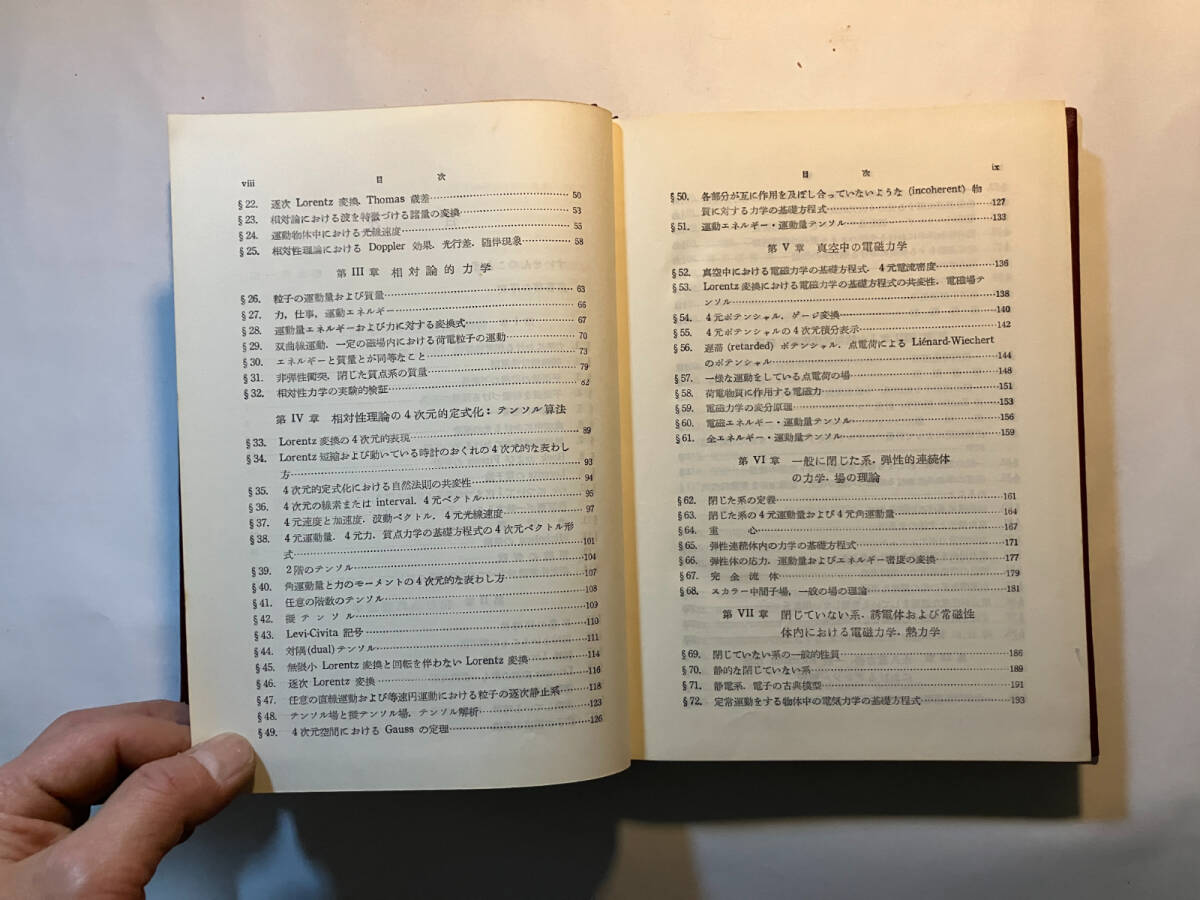 viii 目 次
§22. 逐次 Lorentz 変換, Thomas 歳差 50
§23. 相対論における波を特徴づける諸量の変換 53
§24. 運動物体中における光線速度 55
§25. 相対性理論における Doppler 効果, 光行差, 随伴現象 58
第 III 章 相対論的力学
§26. 粒子の運動量および質量 63
§27. 力, 仕事, 運動エネルギー 66
§28. 運動量エネルギーおよび力に対する変換式 67
§29. 双曲線運動, 一定の磁場内における荷電粒子の運動 70
§30. エネルギーと質量とが同等なこと 73
§31. 非弾性衝突, 閉じた質点系の質量 79
§32. 相対性力学の実験的検証 82
第 IV 章 相対性理論の4次元的定式化: テンソル算法
§33. Lorentz 変換の4次元的表現 89
§34. Lorentz 短縮および動いている時計のおくれの4次元的な表わし
方 93
§35. 4次元的定式化における自然法則の共変性 94
§36. 4次元の線素または interval, 4元ベクトル 95
§37. 4元速度と加速度, 波動ベクトル, 4元光線速度 97
§38. 4元運動量, 4元力, 質点力学の基礎方程式の4次元ベクトル形
式 101
§39. 2階のテンソル 104
§40. 角運動量と力のモーメントの4次元的な表わし方 107
§41. 任意の階数のテンソル 108
§42. 擬テンソル 109
§43. Levi-Civita 記号 110
§44. 対偶(dual)テンソル 111
§45. 無限小 Lorentz 変換と回転を伴わない Lorentz 変換 114
§46. 逐次 Lorentz 変換 116
§47. 任意の直線運動および等速円運動における粒子の逐次静止系 118
§48. テンソル場と擬テンソル場, テンソル解析 123
§49. 4次元空間における Gauss の定理 126
目 次 ix
§50. 各部分が互に作用を及ぼし合っていないような (incoherent) 物
質に対する力学の基礎方程式 127
§51. 運動エネルギー・運動量テンソル 133
第 V 章 真空中の電磁力学
§52. 真空中における電磁力学の基礎方程式, 4元電流密度 136
§53. Lorentz変換における電磁力学の基礎方程式の共変性, 電磁場テ
ンソル 138
§54. 4元ポテンシャル, ゲージ変換 140
§55. 4元ポテンシャルの4次元積分表示 142
§56. 遅滞 (retarded) ポテンシャル, 点電荷による Liénard-Wiechert
のポテンシャル 144
§57. 一様な運動をしている点電荷の場 148
§58. 荷電物質に作用する電磁力 151
§59. 電磁力学の変分原理 153
§60. 電磁エネルギー・運動量テンソル 156
§61. 全エネルギー・運動量テンソル 159
第 VI 章 一般に閉じた系, 弾性的連続体
の力学, 場の理論
§62. 閉じた系の定義 161
§63. 閉じた系の4元運動量および4元角運動量 164
§64. 重 心 167
§65. 弾性連続体内の力学の基礎方程式 171
§66. 弾性体の応力, 運動量およびエネルギー密度の変換 177
§67. 完全流体 179
§68. スカラー中間子場, 一般の場の理論 181
第 VII 章 閉じていない系, 誘電体および常磁性
体内における電磁力学, 熱力学
§69. 閉じていない系の一般的性質 186
§70. 静的な閉じていない系 189
§71. 静電系, 電子の古典模型 191
§72. 定常運動をする物体中の電気力学の基礎方程式 193